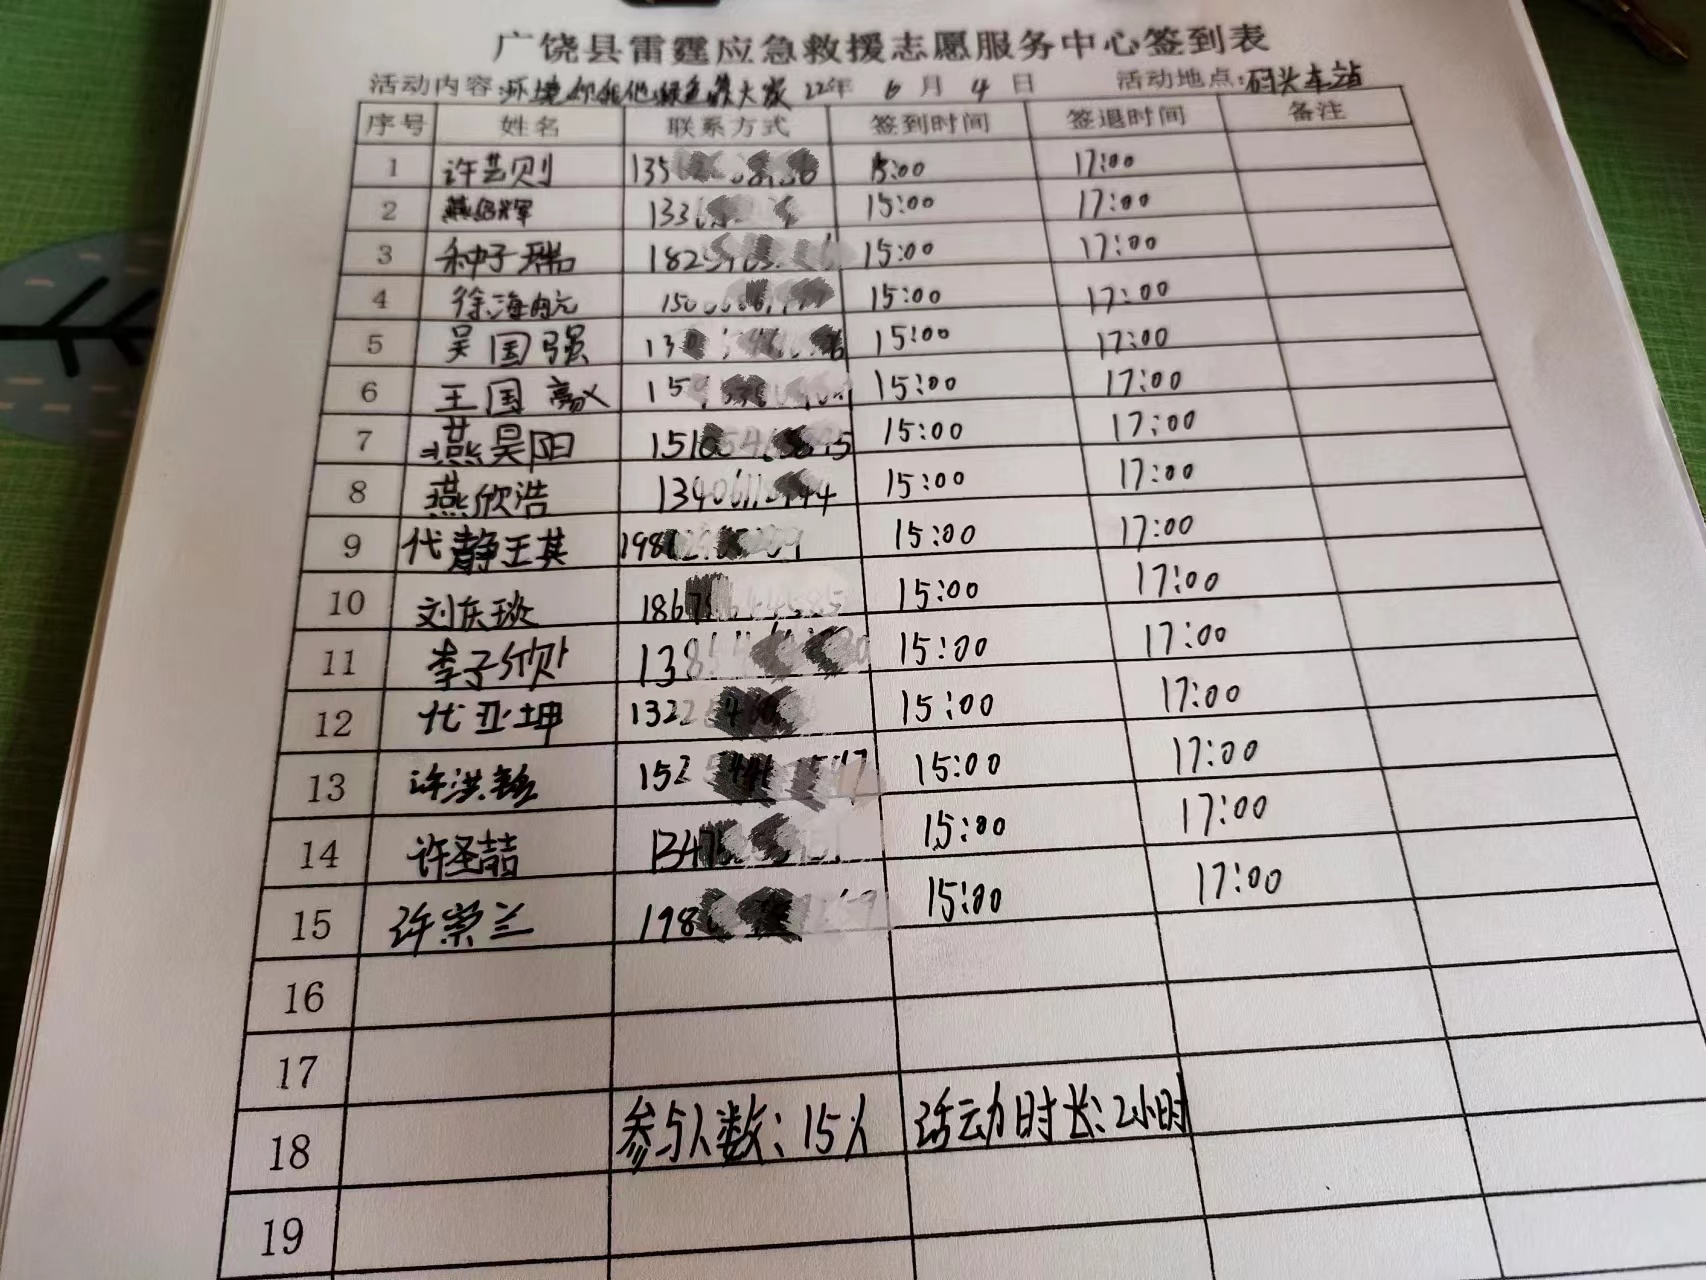 广饶县雷霆应急救援志愿服务中心签到表
活动内容:环境你我他绿色靠大家 22年 6月4日 活动地点:码头车站
序号 姓名 联系方式 签到时间 签退时间 备注
1 许芸则 135 15:00 17:00
2 燕绍辉 133 15:00 17:00
3 种子瑞 182 15:00 17:00
4 徐海 150 15:00 17:00
5 吴国强 13 15:00 17:00
6 王国 159 15:00 17:00
7 燕昊阳 151 15:00 17:00
8 燕欣浩 134 15:00 17:00
9 代静 198 15:00 17:00
10 刘庆琰 1867 15:00 17:00
11 李子欣 138 15:00 17:00
12 代亚坤 132 15:00 17:00
13 许洪 152 15:00 17:00
14 许圣喆 1347 15:00 17:00
15 许崇兰 198 15:00 17:00
16
17
18 参与人数:15人 活动时长:2小时
19